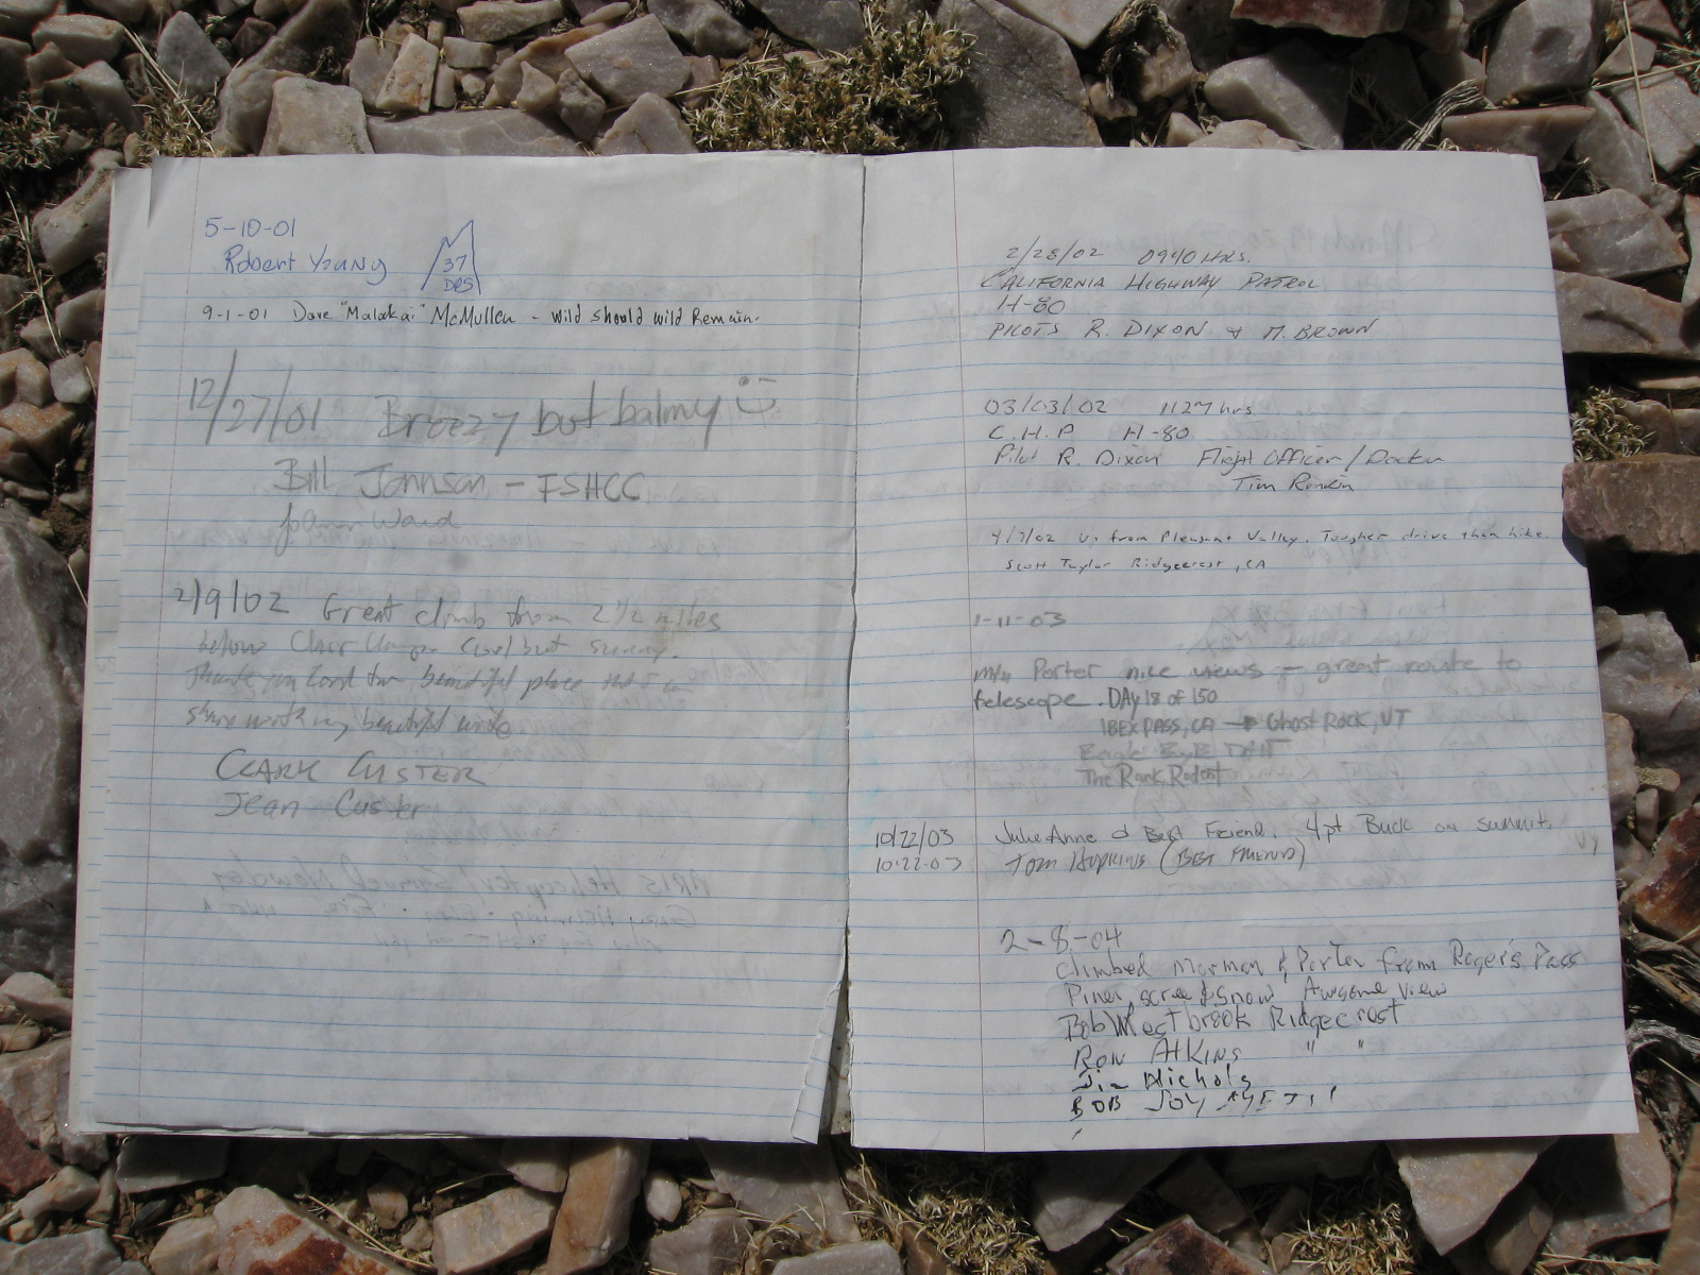 5-10-01
Robert Young
37
DPS
9-1-01 Dave "Malakai" McMullen - Wild should wild Remain.
12/27/01 Breezy but balmy
Bill Johnson - FSHCC
JoAnn Ward
2/9/02 Great climb from 2 1/2 miles
below Clair Camp. Cool but sunny.
Thank you Lord for beautiful place that I can
share with my beautiful wife
CLARK CUSTER
Jean Custer
2/28/02 0940 HRS.
CALIFORNIA HIGHWAY PATROL
H-80
PILOTS R. DIXON & M. BROWN
03/03/02 1127 hrs
C.H.P H-80
Pilot R. Dixon Flight Officer/Doctor
Tim
4/7/02 Up from Pleasant Valley. Tougher drive than hike.
Scott Taylor Ridgecrest, CA
1-11-03
Mtn Porter nice views - great route to
telescope. DAY 18 of 150
IBEX PASS, CA → Ghost Rock, UT
The Rank Rodent
10/22/03 Julie Anne & Best Friend. 4pt Buck on summit.
10-22-03 Tom Hopkins (BEST FRIEND)
2-8-04
Climbed Mormon & Porter from Roger's Pass
Pines, scree & snow, Awesome View
Bob Westbrook Ridgecrest
RON AtKINS " "
Jim Nichols
BOB